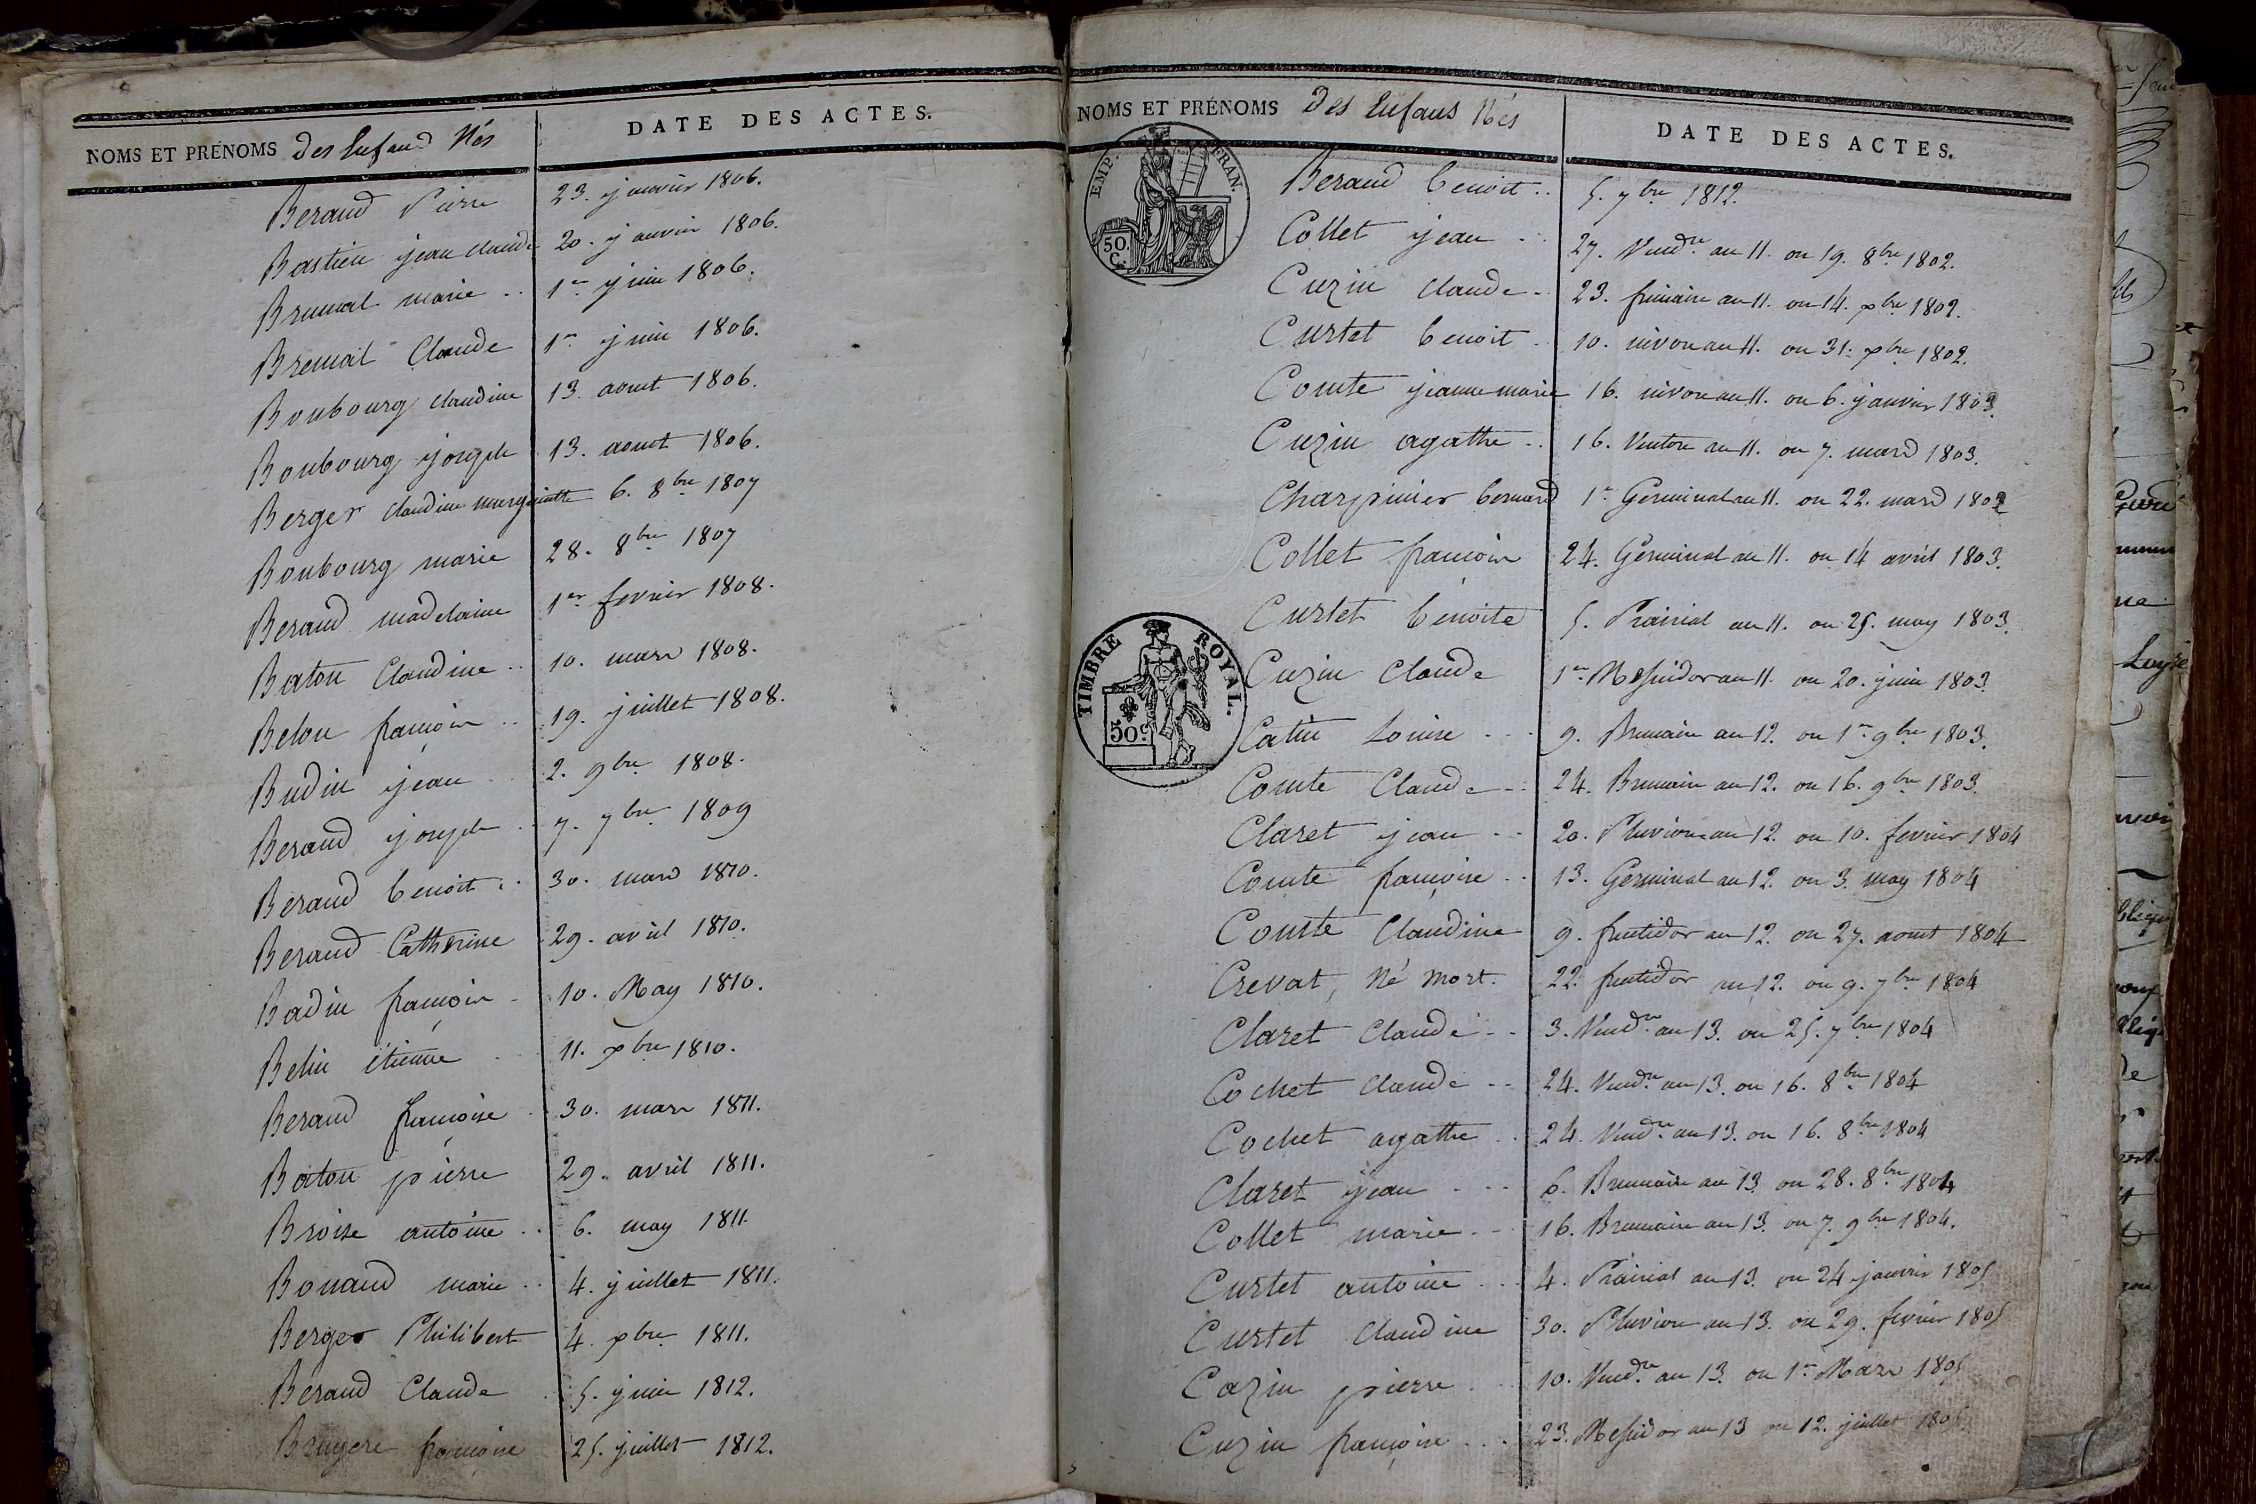 NOMS ET PRÉNOMS des Enfans Nés
DATE DES ACTES.
Beraud Pierre 23. janvier 1806.
Bastien jean claude 20. janvier 1806.
Brumat marie .. 1er juin 1806.
Bremat Claude 1er juin 1806.
Boubourg claudine 13. aoust 1806.
Boubourg joseph 13. aoust 1806.
Berger claudine margueritte 6. 8bre 1807
Boubourg marie 28. 8bre 1807
Beraud madelaine 1er fevrier 1808.
Baton Claudine .. 10. mars 1808.
Belon françois .. 19. juillet 1808.
Budin jean 2. 9bre 1808.
Beraud joseph .. 7. 7bre 1809
Beraud benoit .. 30. mars 1810.
Beraud Catherine 29. avril 1810.
Badin françois . 10. May 1810.
Belin étienne 11. xbre 1810.
Beraud françoise . 30. mars 1811.
Baton pierre 29. avril 1811.
Broise antoine .. 6. may 1811.
Bonaud marie .. 4. juillet 1811.
Berger Philibert 4. xbre 1811.
Beraud Claude . 5. juin 1812.
Bruyere françoise 25. juillet 1812.
NOMS ET PRÉNOMS des Enfans Nés
DATE DES ACTES.
EMP. FRAN.
50. C.
Beraud benoit .. 5. 7bre 1812.
Collet jean .. 27. Vendre an 11. ou 19. 8bre 1802.
Cuzin claude .. 23. frimaire an 11. ou 14. xbre 1802.
Curtet benoit . 10. nivose an 11. ou 31. xbre 1802.
Comte jeanne marie 16. nivose an 11. ou 6. janvier 1803.
Cuzin agathe .. 16. Ventose an 11. ou 7. mars 1803.
Charpinier bernard 1er Germinal an 11. ou 22. mars 1803
Collet françois 24. Germinal an 11. ou 14 avril 1803.
Curtet benoite 5. Prairial an 11. ou 25. may 1803.
TIMBRE ROYAL.
50c
Cuzin Claude 1er Messidor an 11. ou 20. juin 1803.
Catin Louise ... 9. Brumaire an 12. ou 1er 9bre 1803.
Comte Claude .. 24. Brumaire an 12. ou 16. 9bre 1803.
Claret jean .. 20. Pluviose an 12. ou 10. fevrier 1804
Comte françoise .. 13. Germinal an 12. ou 3. may 1804
Comte Claudine 9. fructidor an 12. ou 27. aoust 1804
Crevat, né mort. 22. fructidor an 12. ou 9. 7bre 1804
Claret Claude .. 3. Vendre an 13. ou 25. 7bre 1804
Cochet claude .. 24. Vendre an 13. ou 16. 8bre 1804
Cochet agathe .. 24. Vendre an 13. ou 16. 8bre 1804
Claret jean ... 6. Brumaire an 13. ou 28. 8bre 1804
Collet marie .. 16. Brumaire an 13. ou 7. 9bre 1804.
Curtet antoine ... 4. Prairial an 13. ou 24 janvier 1805
Curtet Claudine 30. Pluviose an 13. ou 29. fevrier 1805
Cazin pierre ... 10. Vendre an 13. ou 1er Mars 1805
Cuzin françoise ... 23. Messidor an 13 ou 12. juillet 1805.